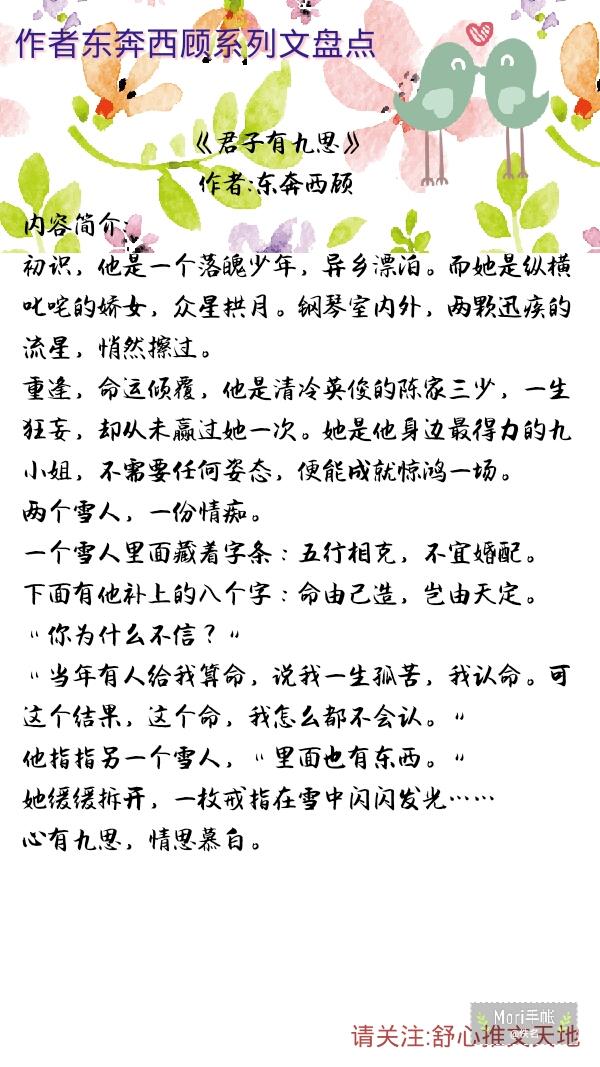 作者东奔西顾系列文盘点
《君子有九思》
作者:东奔西顾
内容简介:
初识，他是一个落魄少年，异乡漂泊。而她是纵横
叱咤的娇女，众星拱月。钢琴室内外，两颗迅疾的
流星，悄然擦过。
重逢，命运倾覆，他是清冷英俊的陈家三少，一生
狂妄，却从未赢过她一次。她是他身边最得力的九
小姐，不需要任何姿态，便能成就惊鸿一场。
两个雪人，一份情痴。
一个雪人里面藏着字条：五行相克，不宜婚配。
下面有他补上的八个字：命由己造，岂由天定。
“你为什么不信？”
“当年有人给我算命，说我一生孤苦，我认命。可
这个结果，这个命，我怎么都不会认。”
他指指另一个雪人，“里面也有东西。”
她缓缓拆开，一枚戒指在雪中闪闪发光……
心有九思，情思慕白。
Mori手帐
请关注:舒心推文天地